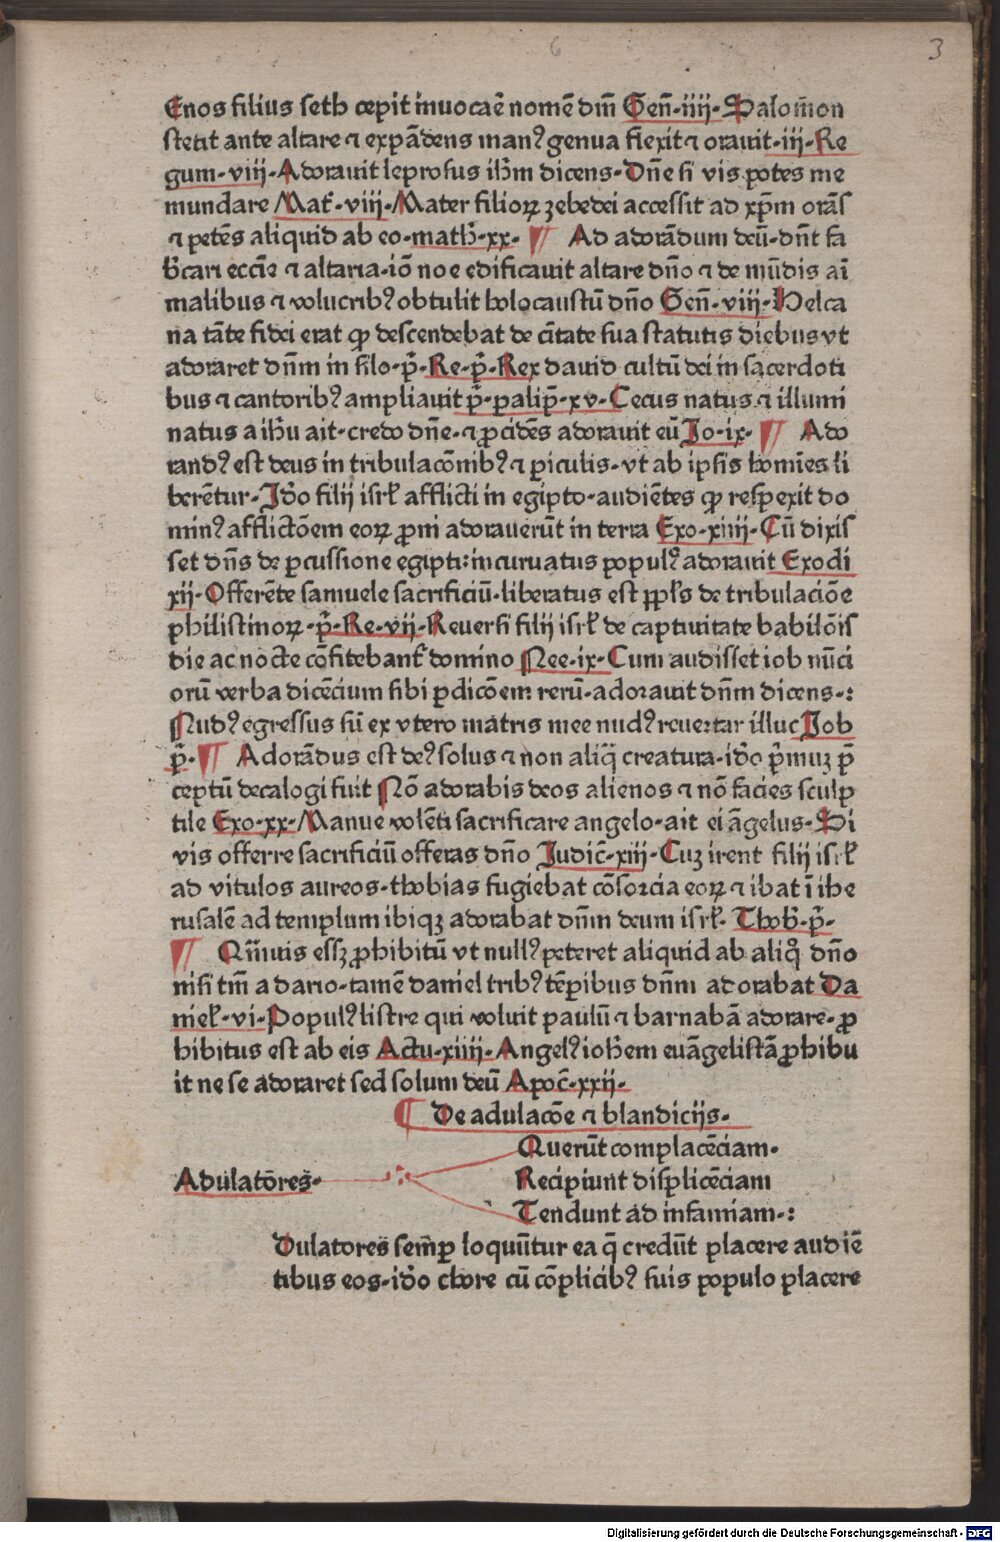 6
3
Enos filius seth cepit inuocaē nomē dm̄ Geñ·iiij·Salom̄on
stetit ante altare ⁊ expādens manꝰ genua flexit ⁊ orauit·iij·Re
gum·viij·Adorauit leprosus ih̄m dicens·Dn̄e si vis potes me
mundare Mat̄·viij·Mater filioꝝ zebedei accessit ad xp̄m orāſ
⁊ petēs aliquid ab eo·math̄·xx· ¶ Ad adorādum deū·dn̄t fa
b̄cari eccīe ⁊ altaria·iō noe edificauit altare dn̄o ⁊ de mūdis ai
malibus ⁊ volucribꝰ obtulit holocaustū dn̄o Geñ·viij·Helca
na tāte fidei erat ꝙ descendebat de ciītate sua statutis diebus vt
adoraret dn̄m in silo·p̄·Re·p̄·Rex dauid cultū dei in sacerdoti
bus ⁊ cantoribꝰ ampliauit p̄·palip̄·xv·Cecus natus ⁊ illumi
natus a ih̄u ait·credo dn̄e·⁊ ꝓcidēs adorauit eū Jo·ix· ¶ Ado
randꝰ est deus in tribulacōnibꝰ ⁊ ꝑiculis·vt ab ipsis homīes li
berētur·Jd̄o filij isrł afflicti in egipto·audiētes ꝙ respexit do
minꝰ afflictōem eoꝝ ꝓni adorauerūt in terra Exo·xiiij·Cū dixis
set dn̄s de ꝑcussione egipti:incuruatus populꝰ adorauit Exodi
xij·Offerēte samuele sacrificiū·liberatus est ppl̄s de tribulaciōe
philistinoꝝ·p̄·Re·vij·Reuersi filij isrł de captiuitate babilōis
die ac nocte cōfitebant̄ domino Nee·ix·Cum audisset iob nūci
orū verba dicēcium sibi ꝑdicōem rerū·adorauit dn̄m dicens·:
Nudꝰ egressus sū ex vtero matris mee nudꝰ reuertar illuc Job
p̄· ¶ Adorādus est deꝰ solus ⁊ non aliq̄ creatura·id̄o p̄muz p̄
ceptū decalogi fuit Nō adorabis deos alienos ⁊ nō facies sculp
tile Exo·xx·Manue volēti sacrificare angelo·ait ei āgelus·Si
vis offerre sacrificiū offeras dn̄o Judic̄·xiij·Cuz irent filij isrł
ad vitulos aureos·thobias fugiebat cōsorcia eoꝝ ⁊ ibat ī ihe
rusalē ad templum ibiqꝫ adorabat dn̄m deum isrł· Thob̄·p̄·
¶ Qm̄uis essꝫ ꝓhibitū vt nullꝰ peteret aliquid ab aliq̊ dn̄o
nisi tm̄ a dario·tamē daniel tribꝰ tēpibus dn̄m adorabat Da
niel̄·vi·Populꝰ listre qui voluit paulū ⁊ barnabā adorare·ꝓ
hibitus est ab eis Actu·xiiij·Angelꝰ ioh̄em euāgelistā ꝓhibu
it ne se adoraret sed solum deū Apoc̄·xxij·
¶ De adulacōe ⁊ blandicijs·
Querūt complacēciam·
Adulatōres·
Recipiunt displicēciam
Tendunt ad infamiam·:
Dulatores sem̄ꝑ loquūtur ea q̄ credūt placere audiē
tibus eos·id̄o chore cū cōplicibꝰ suis populo placere
Digitalisierung gefördert durch die Deutsche Forschungsgemeinschaft - DFG